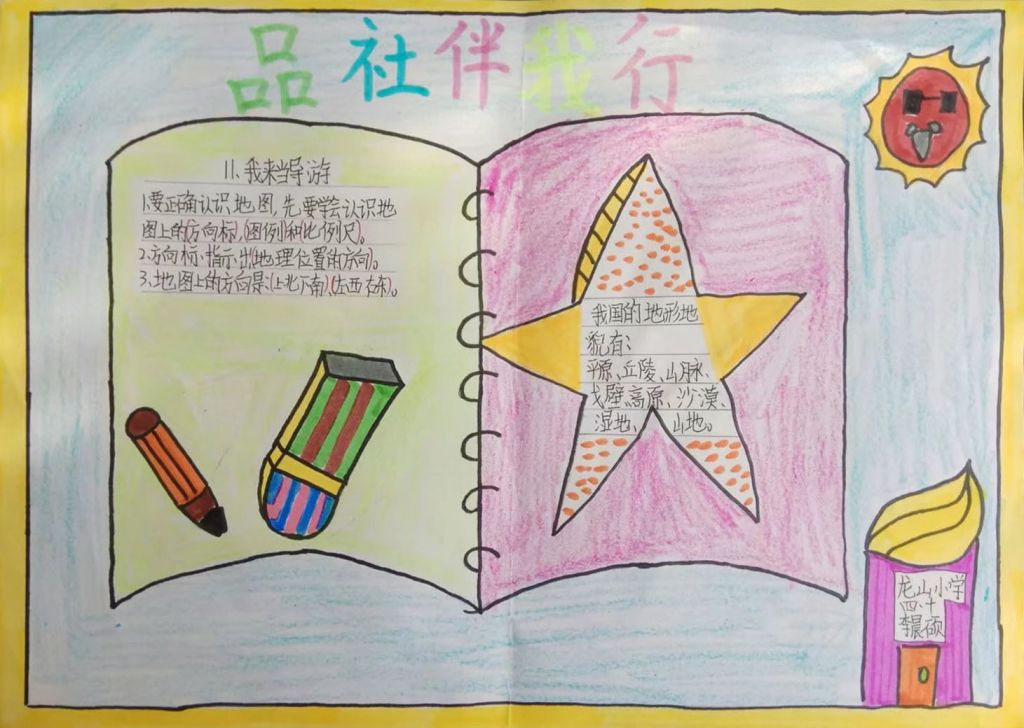 品社伴我行
11、我来当导游
1.要正确认识地图,先要学会认识地
图上的(方向标)、(图例)和(比例尺)。
2.方向标:指示出(地理位置的方向)。
3.地图上的方向是:(上北下南)、(左西右东)。
我国的地形地
貌有:
平原、丘陵、山脉、
戈壁、高原、沙漠、
湿地、山地。
龙山小学
四、十
李晨硕